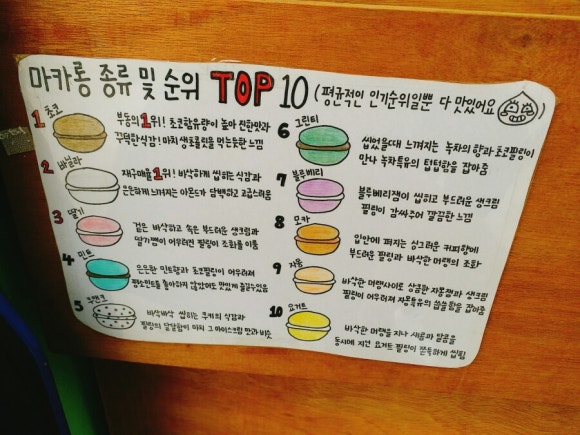 마카롱 종류 및 순위 TOP 10 (평균적인 인기순위일뿐 다 맛있어요
1 초코
부동의 1위! 초코함유량이 높아 진한맛과
꾸덕한식감! 마치 생초콜릿을 먹는듯한 느낌
2 바닐라
재구매율 1위! 바삭하게 씹히는 식감과
은은하게 느껴지는 아몬드가 담백하고 고급스러움
3 딸기
겉은 바삭하고 속은 부드러운 생크림과
딸기잼이 어우러면 필링이 조화를 이룸
4 민트
은은한 민트향과 초코필링이 어우러져
평소민트를 좋아하지 않았어도 맛있게 즐길수있음
5
바삭바삭 씹히는 쿠키의 식감과
필링의 달달함이 마치 그 아이스크림 맛과 비슷
6 그린티
씹었을때 느껴지는 녹차의향과 초코필링이
만나 녹차특유의 텁텁함을 잡아줌
7 블루베리
블루베리잼이 씹히고 부드러운 생크림
필링이 감싸주어 깔끔한 느낌
8 모카
입안에 퍼지는 싱그러운 커피향에
부드러운 필링과 바삭한 머랭의 조화
9 자몽
바삭한 머랭사이로 상큼한 자몽잼과 생크림
필링이 어우러져 자몽특유의 씁쓸함을 잡아줌
10 요거트
바삭한 머랭을 지나 새콤과 달콤을
동시에 지닌 요거트 필링이 쫀득하게 씹힘